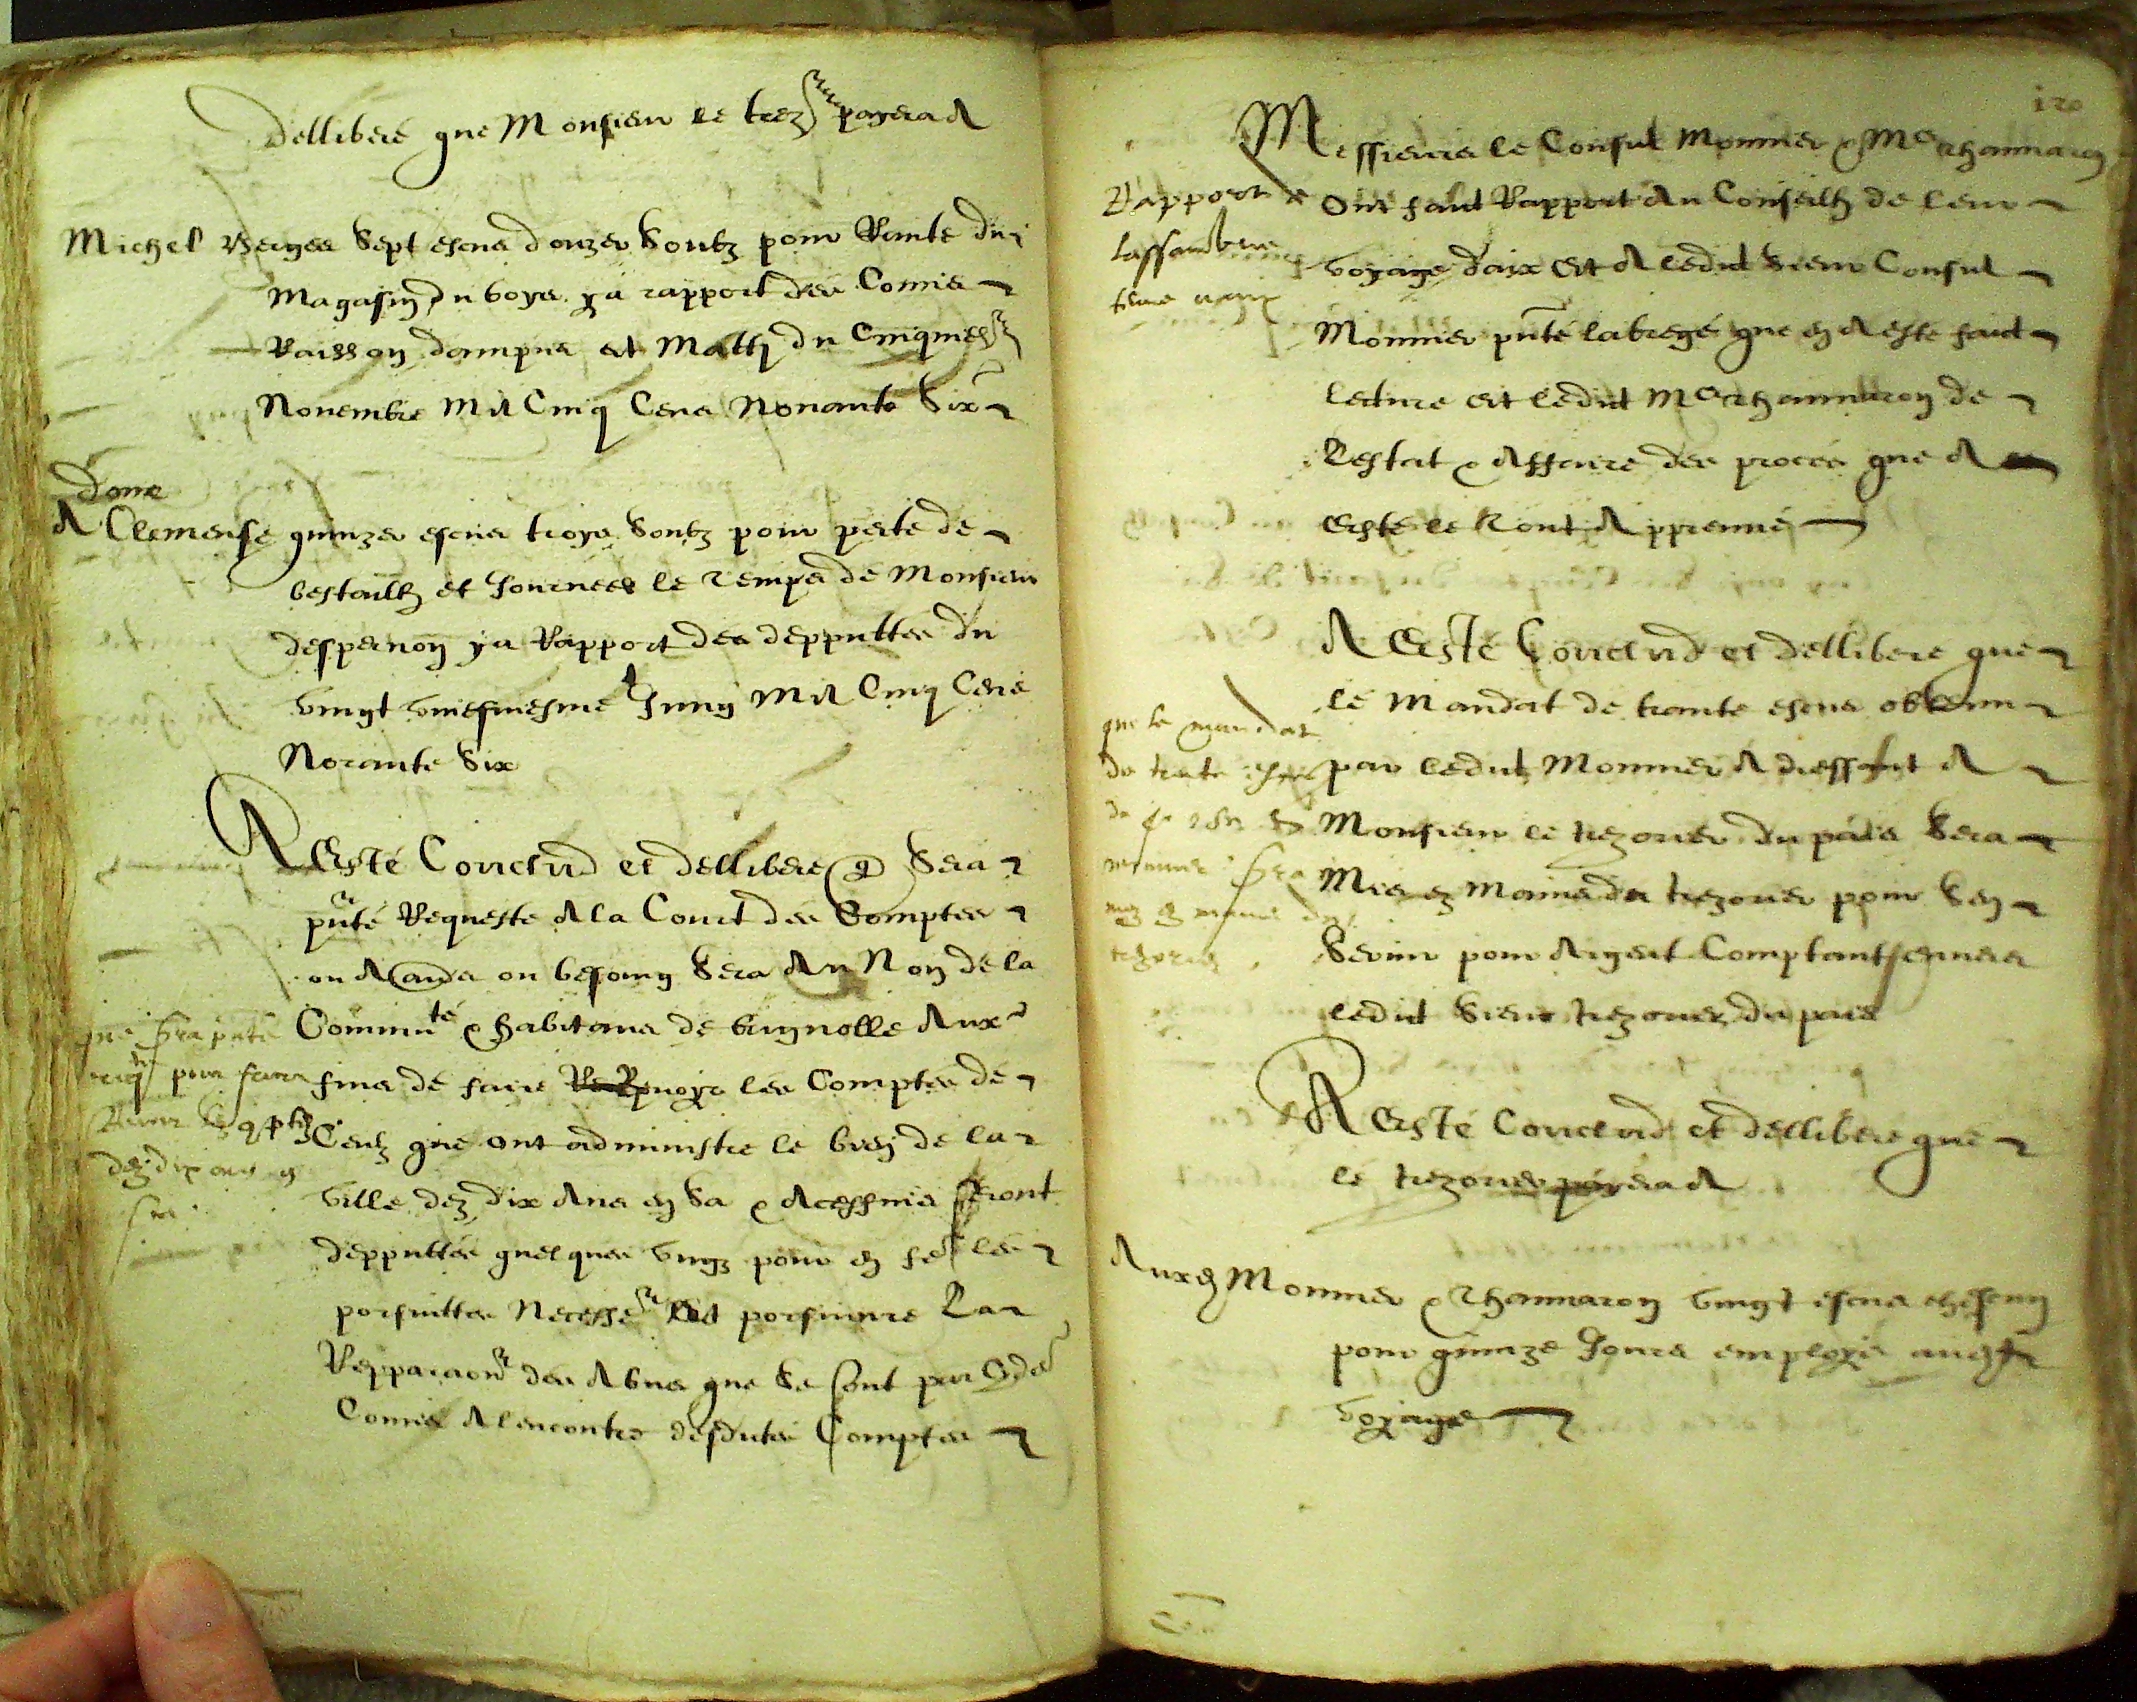 Dellibere que Monsieur le trezr payera A
Michel Verges Sept escus douzes soulz pour Rante du
Magasin du boys ya rapport des Comis
Raisson dampus et Matty du Cinquies
Novembre Mil Cinq Cens Nonante Six
done
A Clemense quinzes escus troys soulz pour perte de
bestailh et Journees le Temps de Monsieur
despernon ya Rapport des depputtes du
vingt uniesmesme Juing Mil Cinq Cens
Nonante Six
A Esté Conclud et dellibere q Sera
pnté Requeste A la Court des Comptes
ou Aides ou besoing Sera Au Nom de la
Commuté & habitans de brignolle Aux
fins de faire Revoyr les Comptes de
Ceulz que ont administre le bien de la
ville dez dix Ans en Sa & A cess fins Seront
depputtes quelques ungz pour en fe les
porsuittes Necesses et porsuivre La
Repparaon des Abus que Se sont par Cyd
Comis A lencontre desdites Comptes
que sera pnté
reqte pour faire
Revoir les comptes
dez dix ans en
sa
120
Messieurs le Consul Monnier & Me Chamaron
Ont faict Rapport Au Conseilh de leur
voyage daix Et A ledict Sieur Consul
Monnier pnté labregé que en A este faict
lecture Et ledict Me Chamaron de
Lestat & Affaire des proces que A
Esté le Tout Apprenné
Rapport de
lassamblee
tenue a aix
A Esté Conclud et dellibere que
le Mandat de trante escus obtenu
par ledict Monnier A dressant A
Monsieur le trezorier du pais Sera
Mis ez Mains du trezorier pour Sen
Servir pour Argent Comptant envers
ledict Sieur trezorier du pais
que le mandat
de trante escus
monnier sera
mis ez mains du
trezorier
A Esté Conclud et dellibere que
le trezorier payera A
Auxd Monnier & Chamaron vingt escus chescun
pour quinze Jours employes audit
voyage